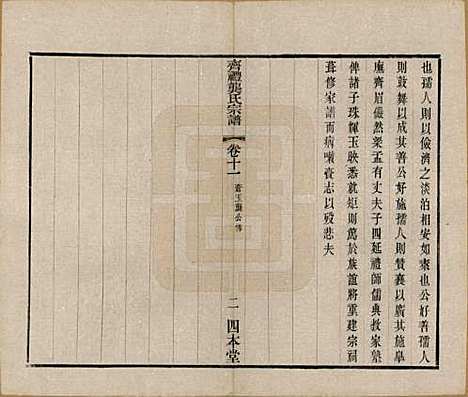 也孺人則以儉濟之淡泊相安如素也公好善孺人
則鼓舞以成其善公好施孺人則贊襄以廣其施皋
廡齊眉儼然梁孟有丈夫子四延禮師儒典教家塾
俾諸子珠輝玉映悉就矩則篤於族誼將重建宗祠
葺修家譜而病嗽齎志以歿悲夫
齊禮龔氏宗譜
卷十一
玉龔公傳
二
四本堂